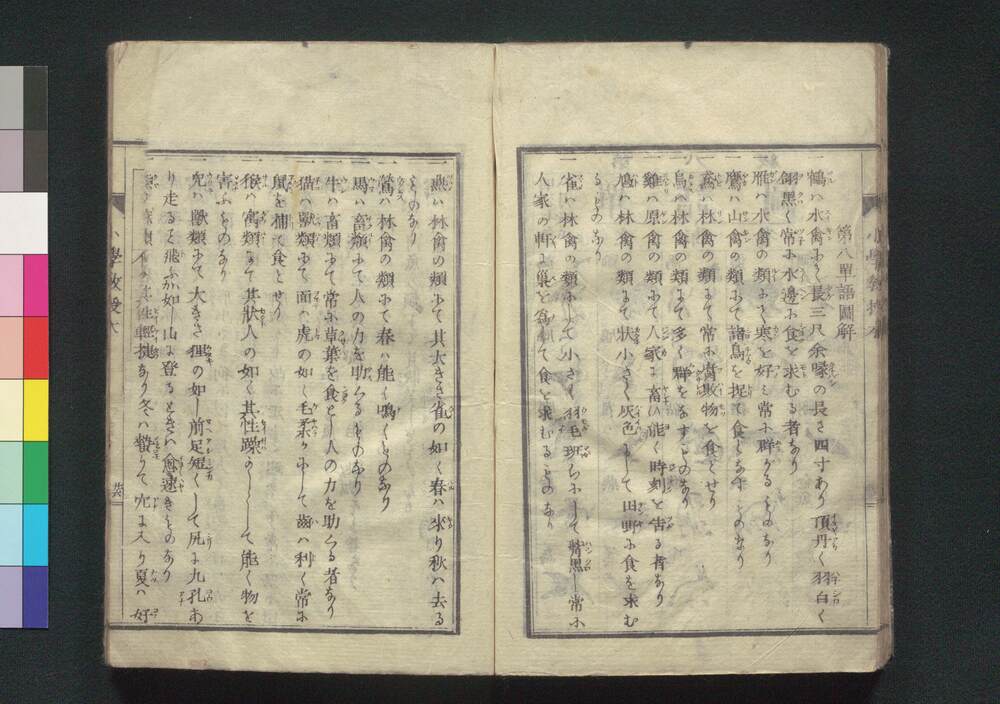 第八單語圖解
一鶴ハ水禽にて長三尺余喙の長さ四寸あり頂丹く羽白く
翎黒く常に水邊に食を求むる者なり
一雁ハ水禽の類にて寒を好ミ常に群がるものなり
一鷹ハ山禽の類にて諸鳥を捉て食となすものなり
一鳶ハ林禽の類にて常に腐敗物を食とせり
一烏ハ林禽の類にて多く群をなすものなり
一雞ハ原禽の類にて人家に畜ひ能く時刻を告る者なり
一鳩ハ林禽の類にて状小さく灰色にして田野に食を求む
るものなり
一雀ハ林禽の類にして小さく羽毛斑らにして觜黒し常に
人家の軒に巣を為て食を求むるものなり
一燕ハ林禽の類にて其大きさ雀の如く春ハ來り秋ハ去る
ものなり
一鶯ハ林禽の類にて春ハ能く鳴くものなり
一馬ハ畜類にて人の力を助くるものなり
一牛ハ畜類にて常に草葉を食とし人の力を助くる者なり
一猫ハ獸類にて面ハ虎の如し毛柔かにして齒ハ利く常に
鼠を捕て食とせり
一猴ハ寓類にて其状人の如く其性躁がしくして能く物を
害ふものなり
一兎ハ獸類にて大きさ狸の如し前足短くして尻に九孔あ
り走ること飛ぶが如し山に登るときハ愈速きものなり
輕捷なり冬ハ蟄りて穴に入り夏ハ好
小學教授本
小學教授本